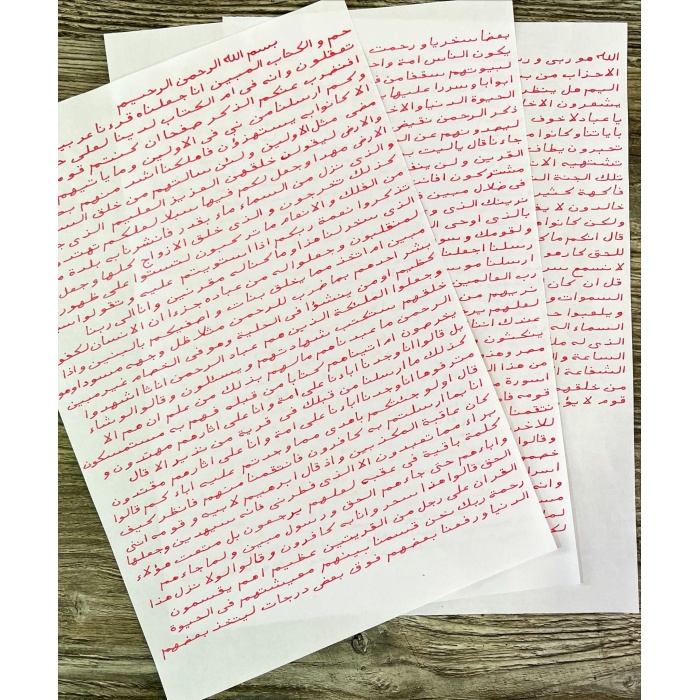 بسم الله الرحمن الرحيم
حم و الكتاب المبين انا جعلناه قرءنا عربيـ
تعقلون و انه فى ام الكتاب لدينا لعلى حـ
افنضرب عنكم الذكر صفحا ان كنتم قوم
وكم ارسلنا من نبى فى الاولين و ما ياتيهم
الا كانوا به يستهزؤن فاهلكنا اشد منهم
مضى مثل الاولين و لئن سالتهم من خلق
والارض ليقولن خلقهن العزيز العليم الذى
الارض مهدا وجعل لكم فيها سبلا لعلكم تهتد
و الذى نزل من السماء ماء بقدر فانشرنا به بلدة
كذلك تخرجون و الذى خلق الازواج كلها وجعل
من الفلك و الانعام ما تركبون لتستوا على ظهور
تذكروا نعمة ربكم اذا استويتم عليه و تقولوا
الذى سخر لنا هذا و ما كنا له مقرنين و انا الى ربنا
لمنقلبون و جعلوا له من عباده جزءا ان الانسان لكفور
مبين ام اتخذ مما يخلق بنات و اصفيكم بالبنين و اذا
بشر احدهم بما ضرب للرحمن مثلا ظل وجهه مسودا وهو
كظيم او من ينشؤا فى الحلية و هو فى الخصام غير مبين
و جعلوا الملئكة الذين هم عباد الرحمن اناثا اشهدوا
خلقهم ستكتب شهادتهم و يسئلون و قالوا لو شاء
الرحمن ما عبدناهم مالهم بذلك من علم ان هم الا
يخرصون ام اتيناهم كتابا من قبله فهم به مستمسكون
بل قالوا انا وجدنا اباءنا على امة و انا على اثارهم مهتدون و
كذلك ما ارسلنا من قبلك فى قرية من نذير الا قال
مترفوها انا وجدنا اباءنا على امة و انا على اثارهم مقتدون
قال اولو جئتكم باهدى مما وجدتم عليه اباءكم قالوا
انا بما ارسلتم به كافرون فانتقمنا منهم فانظر كيف
كان عاقبة المكذبين و اذ قال ابرهيم لابيه و قومه اننى
براء مما تعبدون الا الذى فطرنى فانه سيهدين و جعلها
كلمة باقية فى عقبه لعلهم يرجعون بل متعت هؤلاء
و اباءهم حتى جاءهم الحق و رسول مبين و لما جاءهم
الحق قالوا هذا سحر و انا به كافرون و قالوا لولا نزل هذا
القران على رجل من القريتين عظيم اهم يقسمون
رحمة ربك نحن قسمنا بينهم معيشتهم فى الحيوة
الدنيا و رفعنا بعضهم فوق بعض درجات ليتخذ بعضهم
بعضا سخريا و رحمت
يكون الناس امة واحـ
لبيوتهم سقفا من فـ
ابوابا و سررا عليها
الحيوة الدنيا و الاخـ
ذكر الرحمن نقيض
ليصدونهم عن الـ
جاءنا قال ياليت بـ
القرين و لن ينفـ
مشتركون افانت
فى ضلال مبين
نرينك الذى و
بالذى اوحى
و لقومك و سو
رسلنا اجعلنا
ارسلنا موسى
رب العالمين
نريهم من
لعلهم ير
عندك ان
ينكثون
مصر و هذ
من هذا ا
اسورة
قومه فا
انتقمنا
للاخر
و قالوا
خصم
اسرا
و انه
الله هو ربى و ر
الاحزاب من بـ
اليم هل ينظر
يشعرون الاخـ
يا عباد لا خوف
باياتنا و كانوا مـ
تحبرون يطاف
تشتهيه الانـ
تلك الجنة ا
فاكهة كثيـ
خالدون لا يفـ
و لكن كانوا
قال انكم ماكـ
للحق كارهو
لا نسمع سر
قل ان كان
السموات و
و يلعبوا حـ
السماء الـ
الذى له مـ
الساعة و
الشفاعة
من خلقهم
قوم لا يؤ